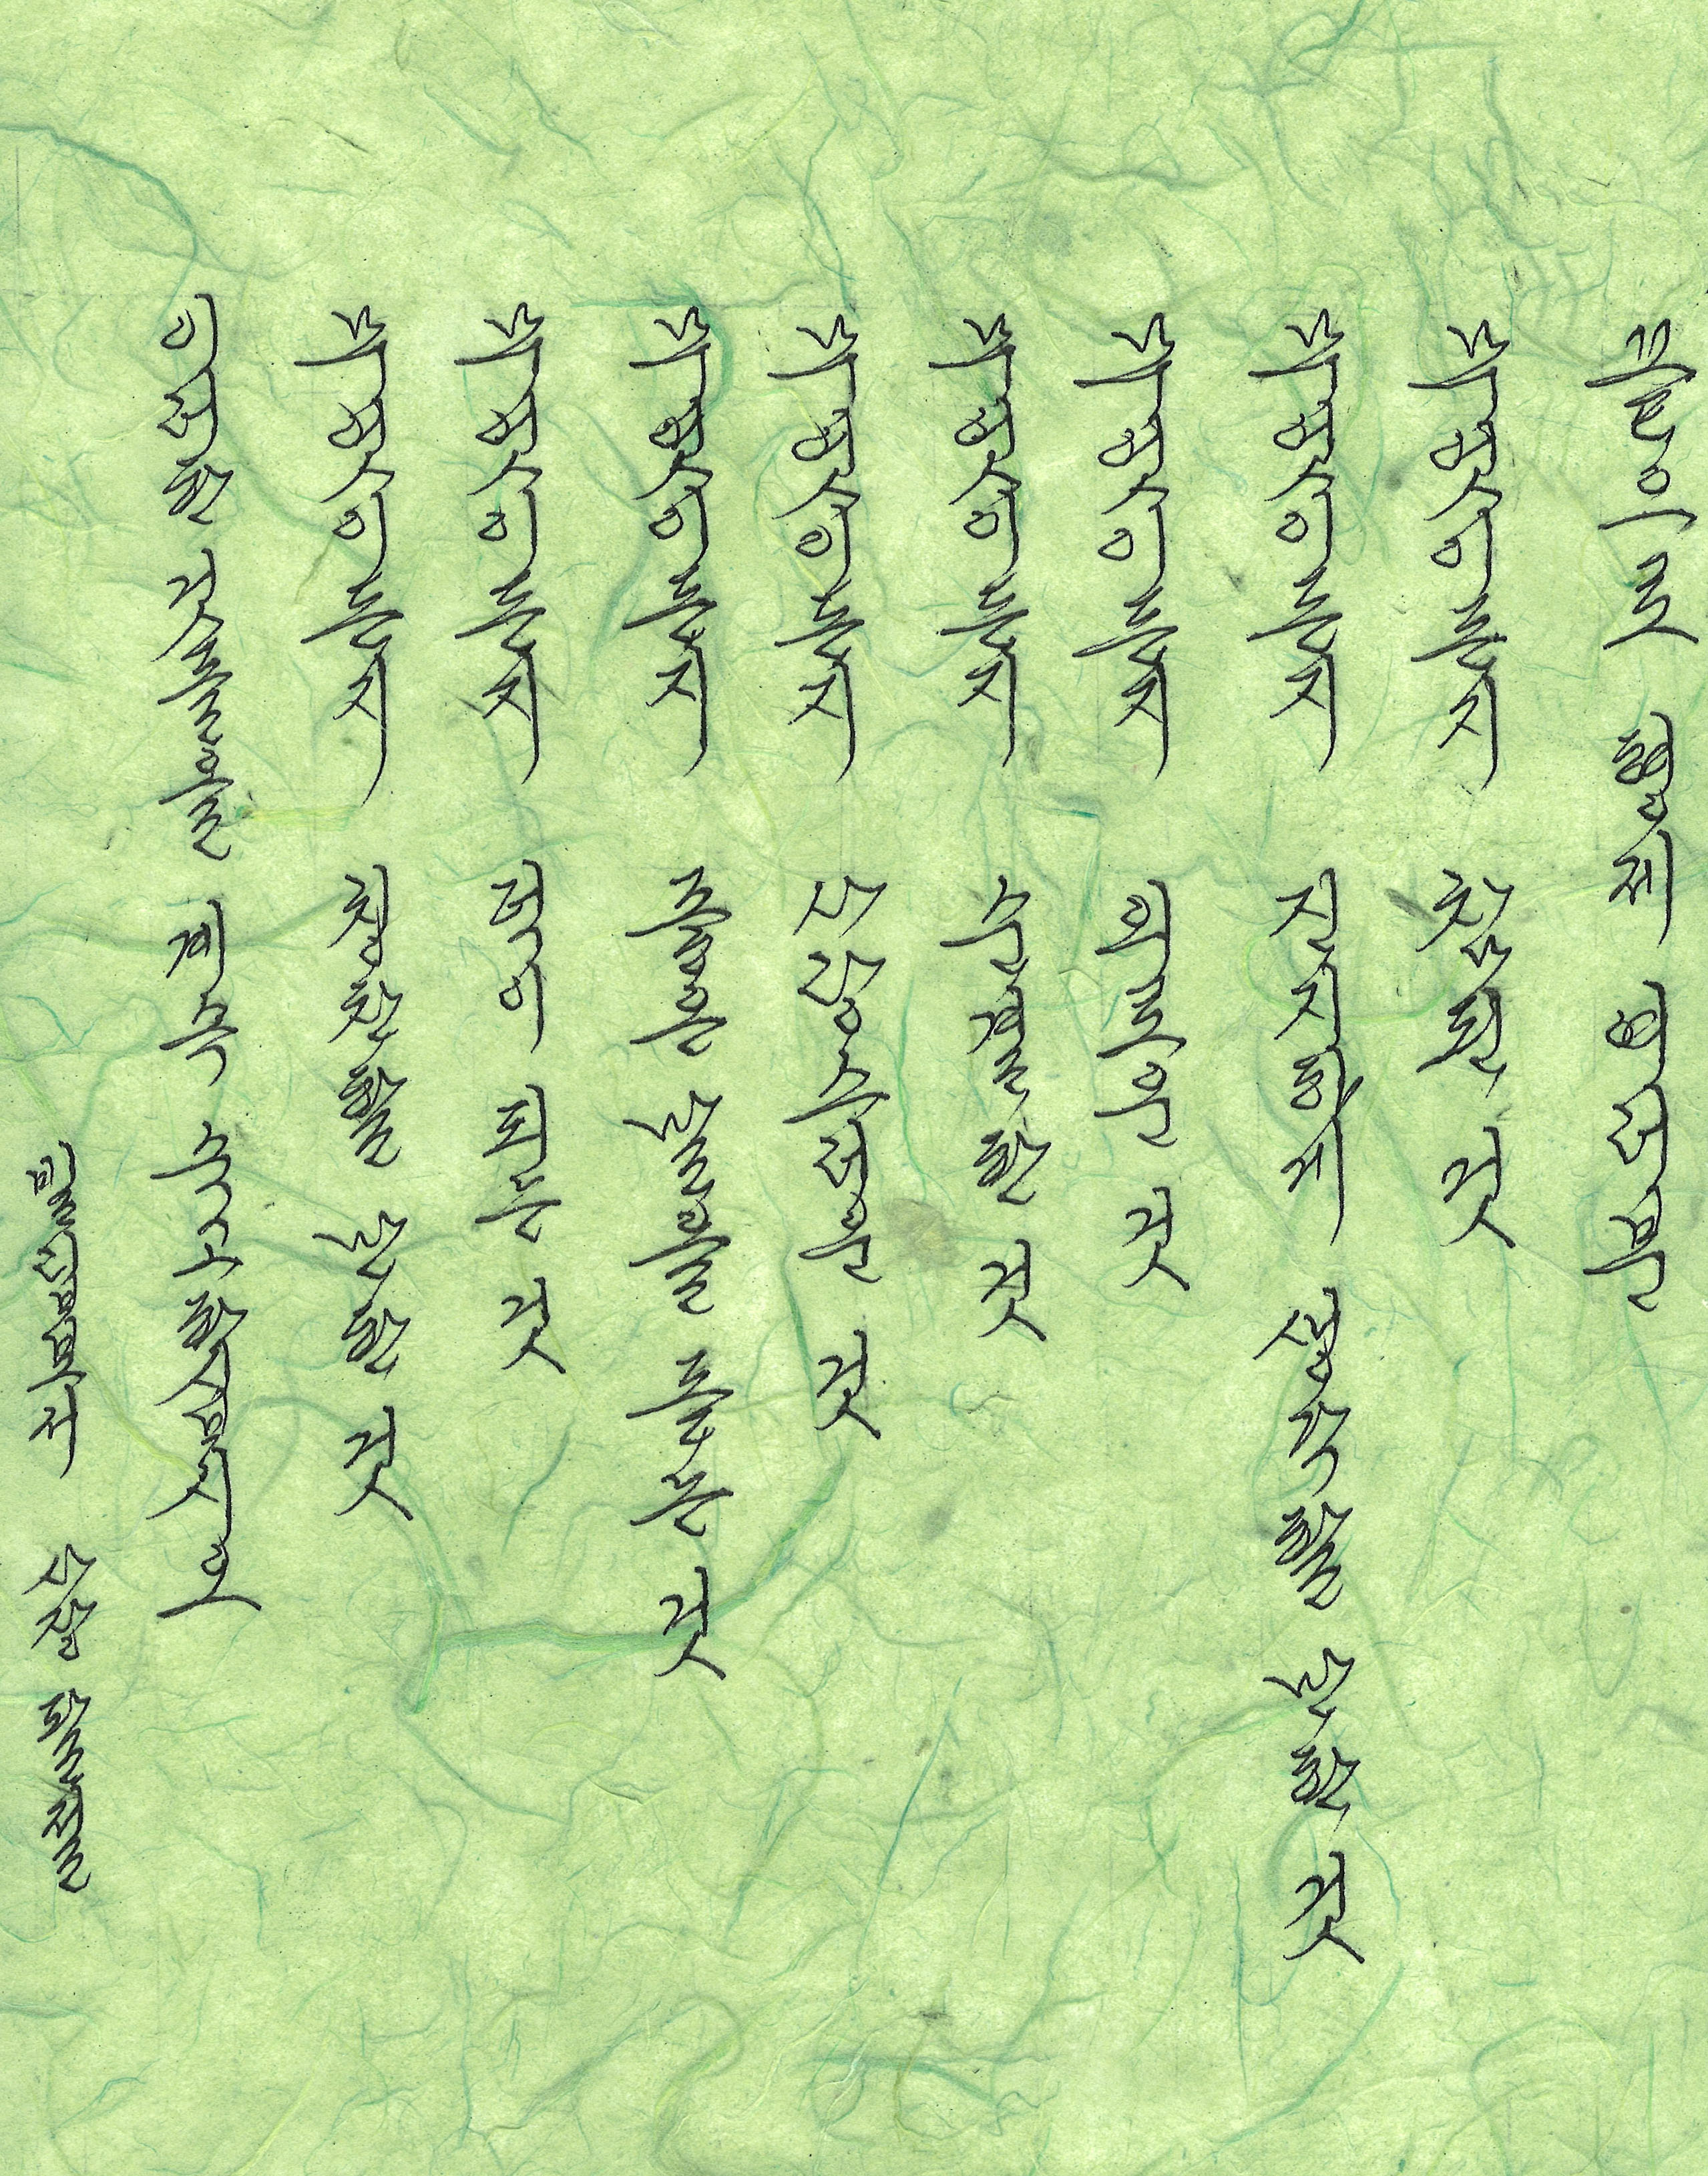 끝으로 형제 여러분
무엇이든지 참된 것
무엇이든지 진지하게 생각할 만한 것
무엇이든지 의로운 것
무엇이든지 순결한 것
무엇이든지 사랑스러운 것
무엇이든지 좋은 말을 듣는 것
무엇이든지 덕이 되는 것
무엇이든지 칭찬할 만한 것
이러한 것들을 계속 숙고하십시오
빌립보서 사장 팔절